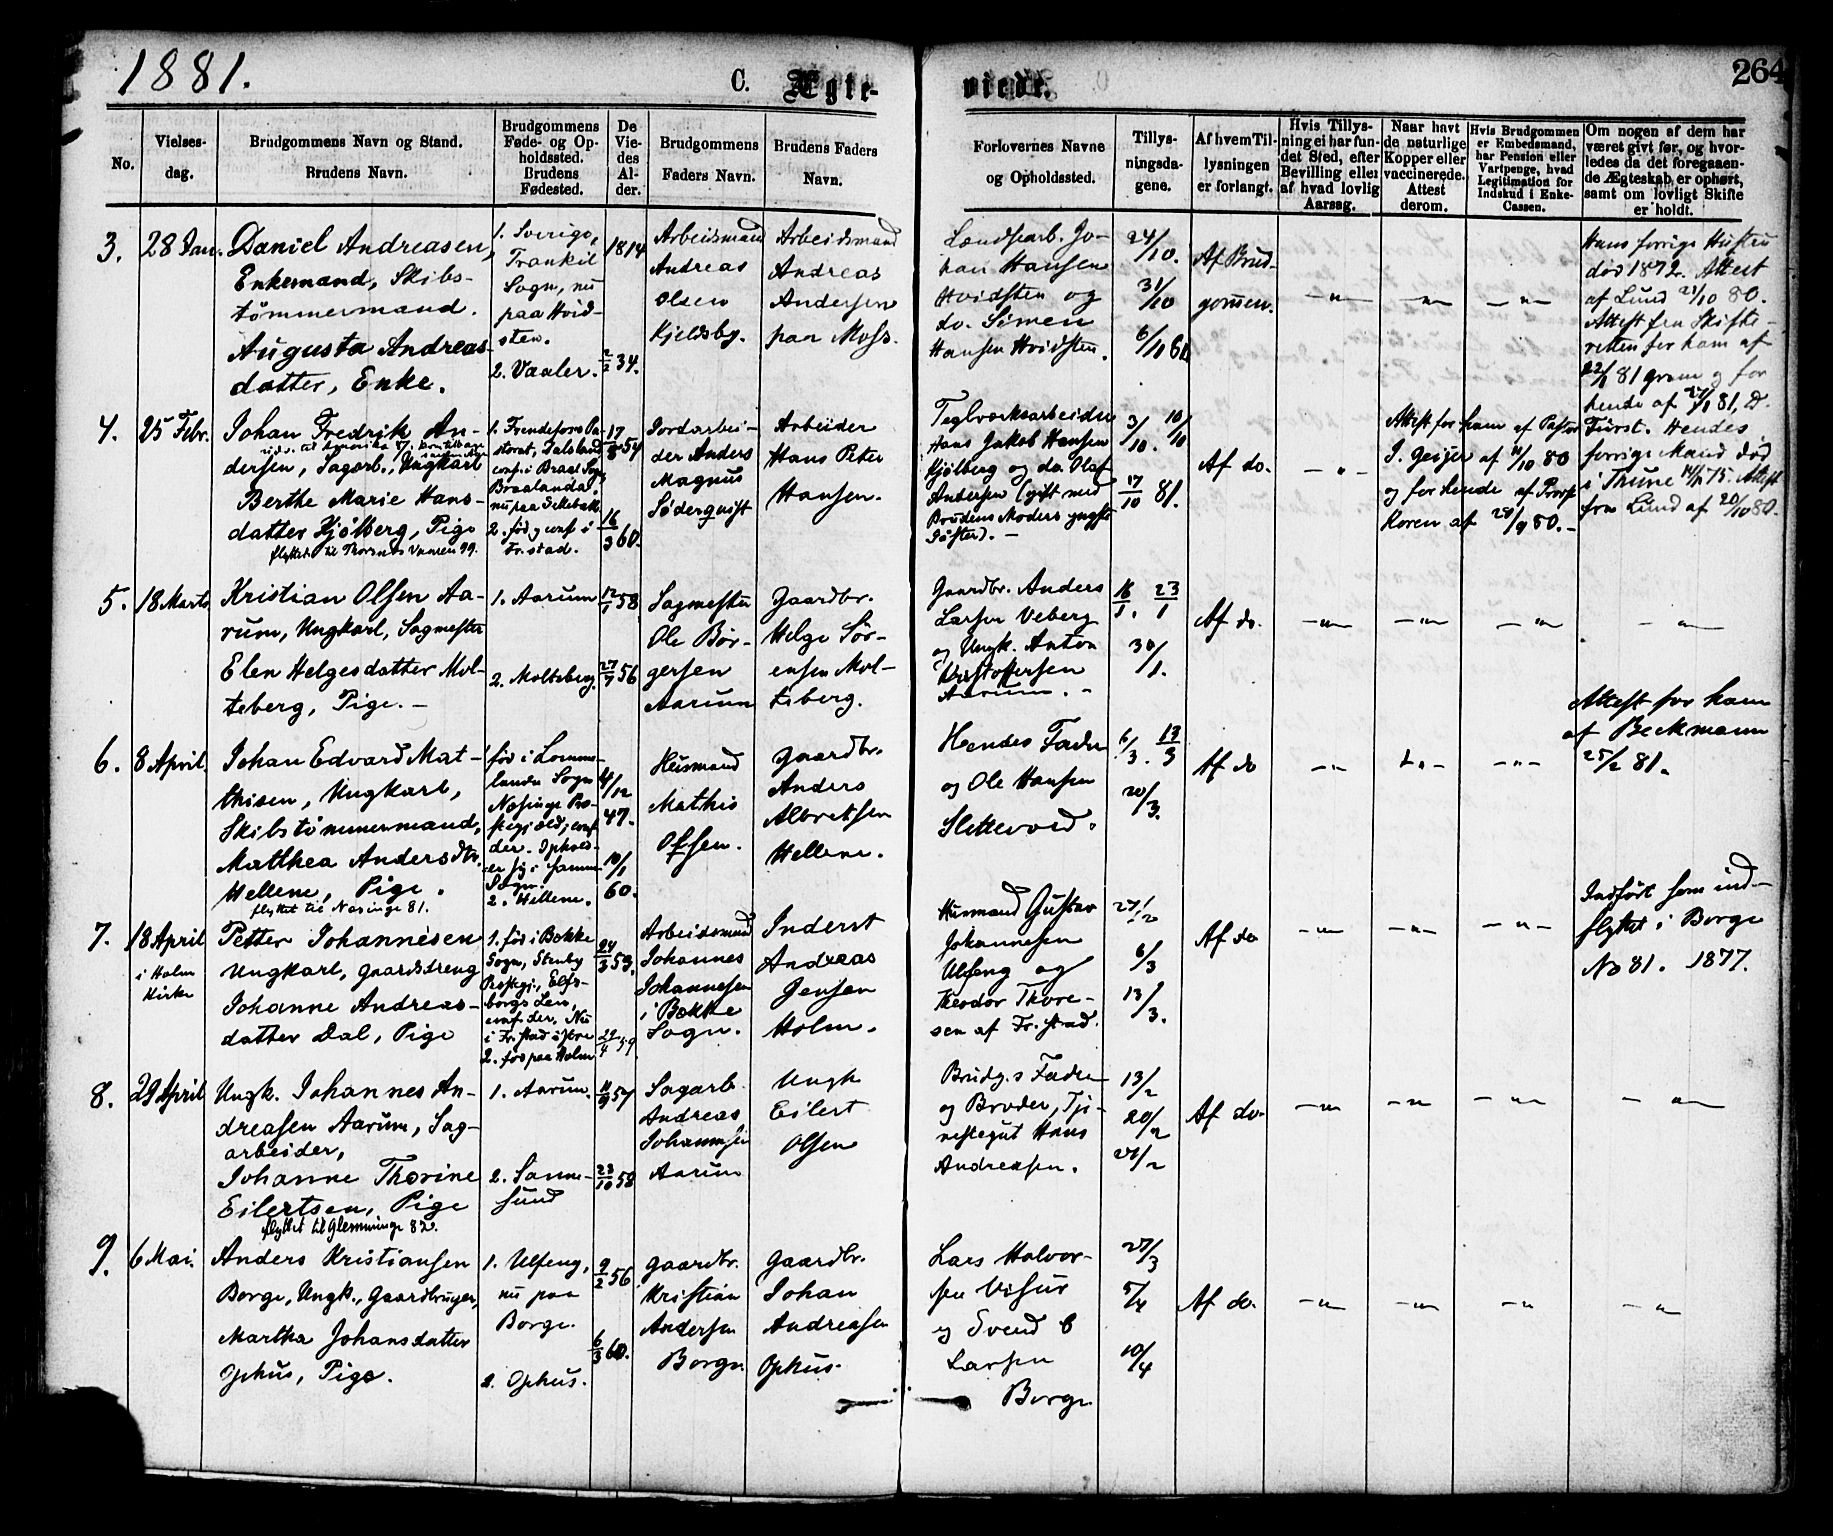 1881.
C. Ægte-
viede.
264
No.
Vielses-
dag.
Brudgommens Navn og Stand.
Brudens Navn.
Brudgommens
Føde- og Op-
holdssted.
Brudens
Fødested.
De
Vie-
des
Al-
der.
Brudgommens
Faders Navn.
Brudens Faders
Navn.
Forlovernes Navne
og Opholdssted.
Tillys-
ningsda-
gene.
Af hvem Til-
lysningen
er forlangt.
Hvis Tillys-
ning ei har fun-
det Sted, efter
Bevilling eller
af hvad lovlig
Aarsag.
Naar havt
de naturlige
Kopper eller
vaccinerede.
Attest
derom.
Hvis Brudgommen
er Embedsmand,
har Pension eller
Vartpenge, hvad
Legitimation for
Indskud i Enke-
Cassen.
Om nogen af dem har
været givt før, og hvor-
ledes da det foregaaen-
de Ægteskab er ophørt,
samt om lovligt Skifte
er holdt.
3.
28 Jan.
Daniel Andreasen,
Enkemand, Skibs-
tømmermand.
Augusta Andreas-
datter, Enke.
1. Sverige,
Trankil
Sogn, nu
paa Hvid-
sten.
2. Vaaler.
1814
2/2 34.
Arbeidsmand
Andreas
Olsen
Kjeldsby.
Arbeidsmand
Andreas
Andersen
paa Moss.
Landharb. Jo-
han Hansen
Hvidsten og
do. Simen
Hansen Hvidsten.
24/10.
31/10
6/11
Af Brud-
gommen.
-„-
-„-
-„-
Hans forrige Hustru
død 1872. Attest
af Lund 21/10 80.
Attest fra Skifte-
retten for ham af
22/1 81 og for
hende af 81,
4.
25 Febr.
Johan Fredrik An-
dersen, Sagarb., Ungkarl
Berthe Marie Hans-
datter Kjølberg, Pige
flyttet til Thorsnes Vaaren 99.
1. Frendefors Pa-
storat, Dalsland
conf. i Braal. Sogn
Braalanda.
2. fød og conf. i
Fr.stad.
17/8 54
16/3 60.
Jordarbei-
der Anders
Magnus
Söderquist
Arbeider
Hans Peter
Hansen.
Teglværksarbeider
Hans Jakob Hansen
Kjølberg og do. Olaf
Andersen (gift med
Brudens Moders yngste
Søster). -
3/10.
17/10 81.
Af do.
-„-
Attest for ham af Pastor
J. Geijer af 14/10 80
og for Hende af Provst
Koren af 28/9 80. -
Fürst. Hendes
forrige Mand død
i Thune 14/11 75. Attest
fra Lund af 20/10 80.
5.
18 Marts
Kristian Olsen Aa-
rum, Ungkarl, Sagmester
Elen Helgesdatter Mol-
teberg, Pige. -
1. Aarum
2. Molteberg.
12/1 58
27/7 56
Sagmester
Ole Bør-
gersen
Aarum
Gaardbr.
Helge Sør-
ensen Mol-
teberg.
Gaardbr. Anders
Larsen Veberg
og Ungk. Anton
Kristoffersen
Aarum. -
16/1. 23/1
30/1.
Af do.
-„-
-„-
-„-
-„-
6.
8 April.
Johan Edvard Mat-
thisen, Ungkarl,
Skibstømmermand,
Matthea Andersdtr.
Hellene, Pige.
flyttet til Næsinge 81.
fød i Lomme-
landa Sogn
Næsinge Præ-
stegjæld, conf.
der. Ophold-
er sig i samme
Sogn.
2. Hellene.
4/12
47.
10/1
60.
Husmand
Mathis
Olsen.
Gaardbr.
Anders
Albretsen
Hellene.
Hendes Fader
og Ole Hansen
Slettevold.
6/3. 13/3
20/3.
Af do
-„-
-„-
-„-
Attest for ham
af Beckmann
25/2 81.
7.
18 April
i Holm
Kirke
Petter Johannesen
Ungkarl, Gaardsdreng
Johanne Andreas-
datter Dal, Pige
1. fød i Bokke
Sogn, Stenby
Præstegj., Elfs-
borgs Len,
conf. der. Nu
i Fr.stad
2. fød paa Holm
24/3 53.
29/4 59.
Arbeidsmand
Johannes
Johannesen
i Bokke
Sogn.
Inderst
Andreas
Jensen
Holm.
Husmand Gustav
Johannesen
Ulfeng og
Theodor Thore-
sen af Fr.stad.
27/2
6/3
13/3.
Af do
-„-
-„-
-„-
Indført som ind-
flyttet i Borge
No 81. 1877.
8.
29 April
Ungk. Johannes An-
dreasen Aarum, Sag-
arbeider,
Johanne Thorine
Eilertsen, Pige
flyttet til Glemminge 82.
1. Aarum.
2. Sanne-
sund
11/9 57
23/10 58
Sagarb.
Andreas
Johannesen
Aarum
Ungk
Eilert
Olsen
Brudg.s Fader
og Broder, Tje-
nestegut Hans
Andreasen.
13/2
20/2
27/2
Af do.
-„-
-„-
-„-
-„-
9.
6 Mai.
Anders Kristiansen
Borge, Ungk., Gaardbruger,
Martha Johansdatter
Ophus, Pige.
1. Ulfeng,
nu paa
Borge.
2. Ophus.
9/2 56
6/3 60.
Gaardbr.
Kristian
Andersen
Borge.
Gaardbr.
Johan
Andreasen
Ophus.
Lars Halvor-
sen Visur
og Svend
Larsen
Borge
27/3
5/4
10/4
Af do.
-„-
-„-
-„-
-„-